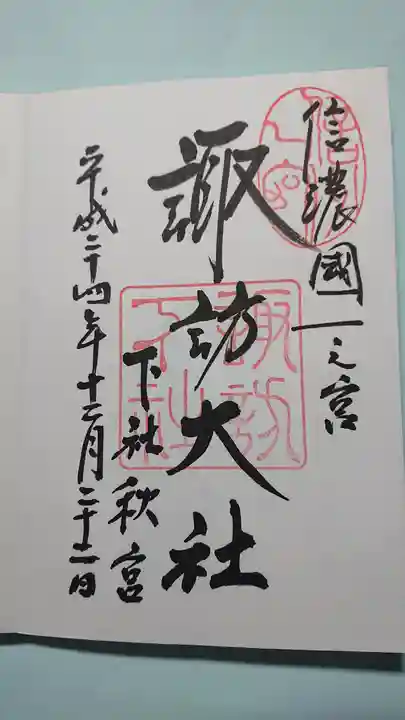 信濃國一之宮
諏訪大社
下社秋宮
平成二十四年十二月二十二日
諏訪
下社